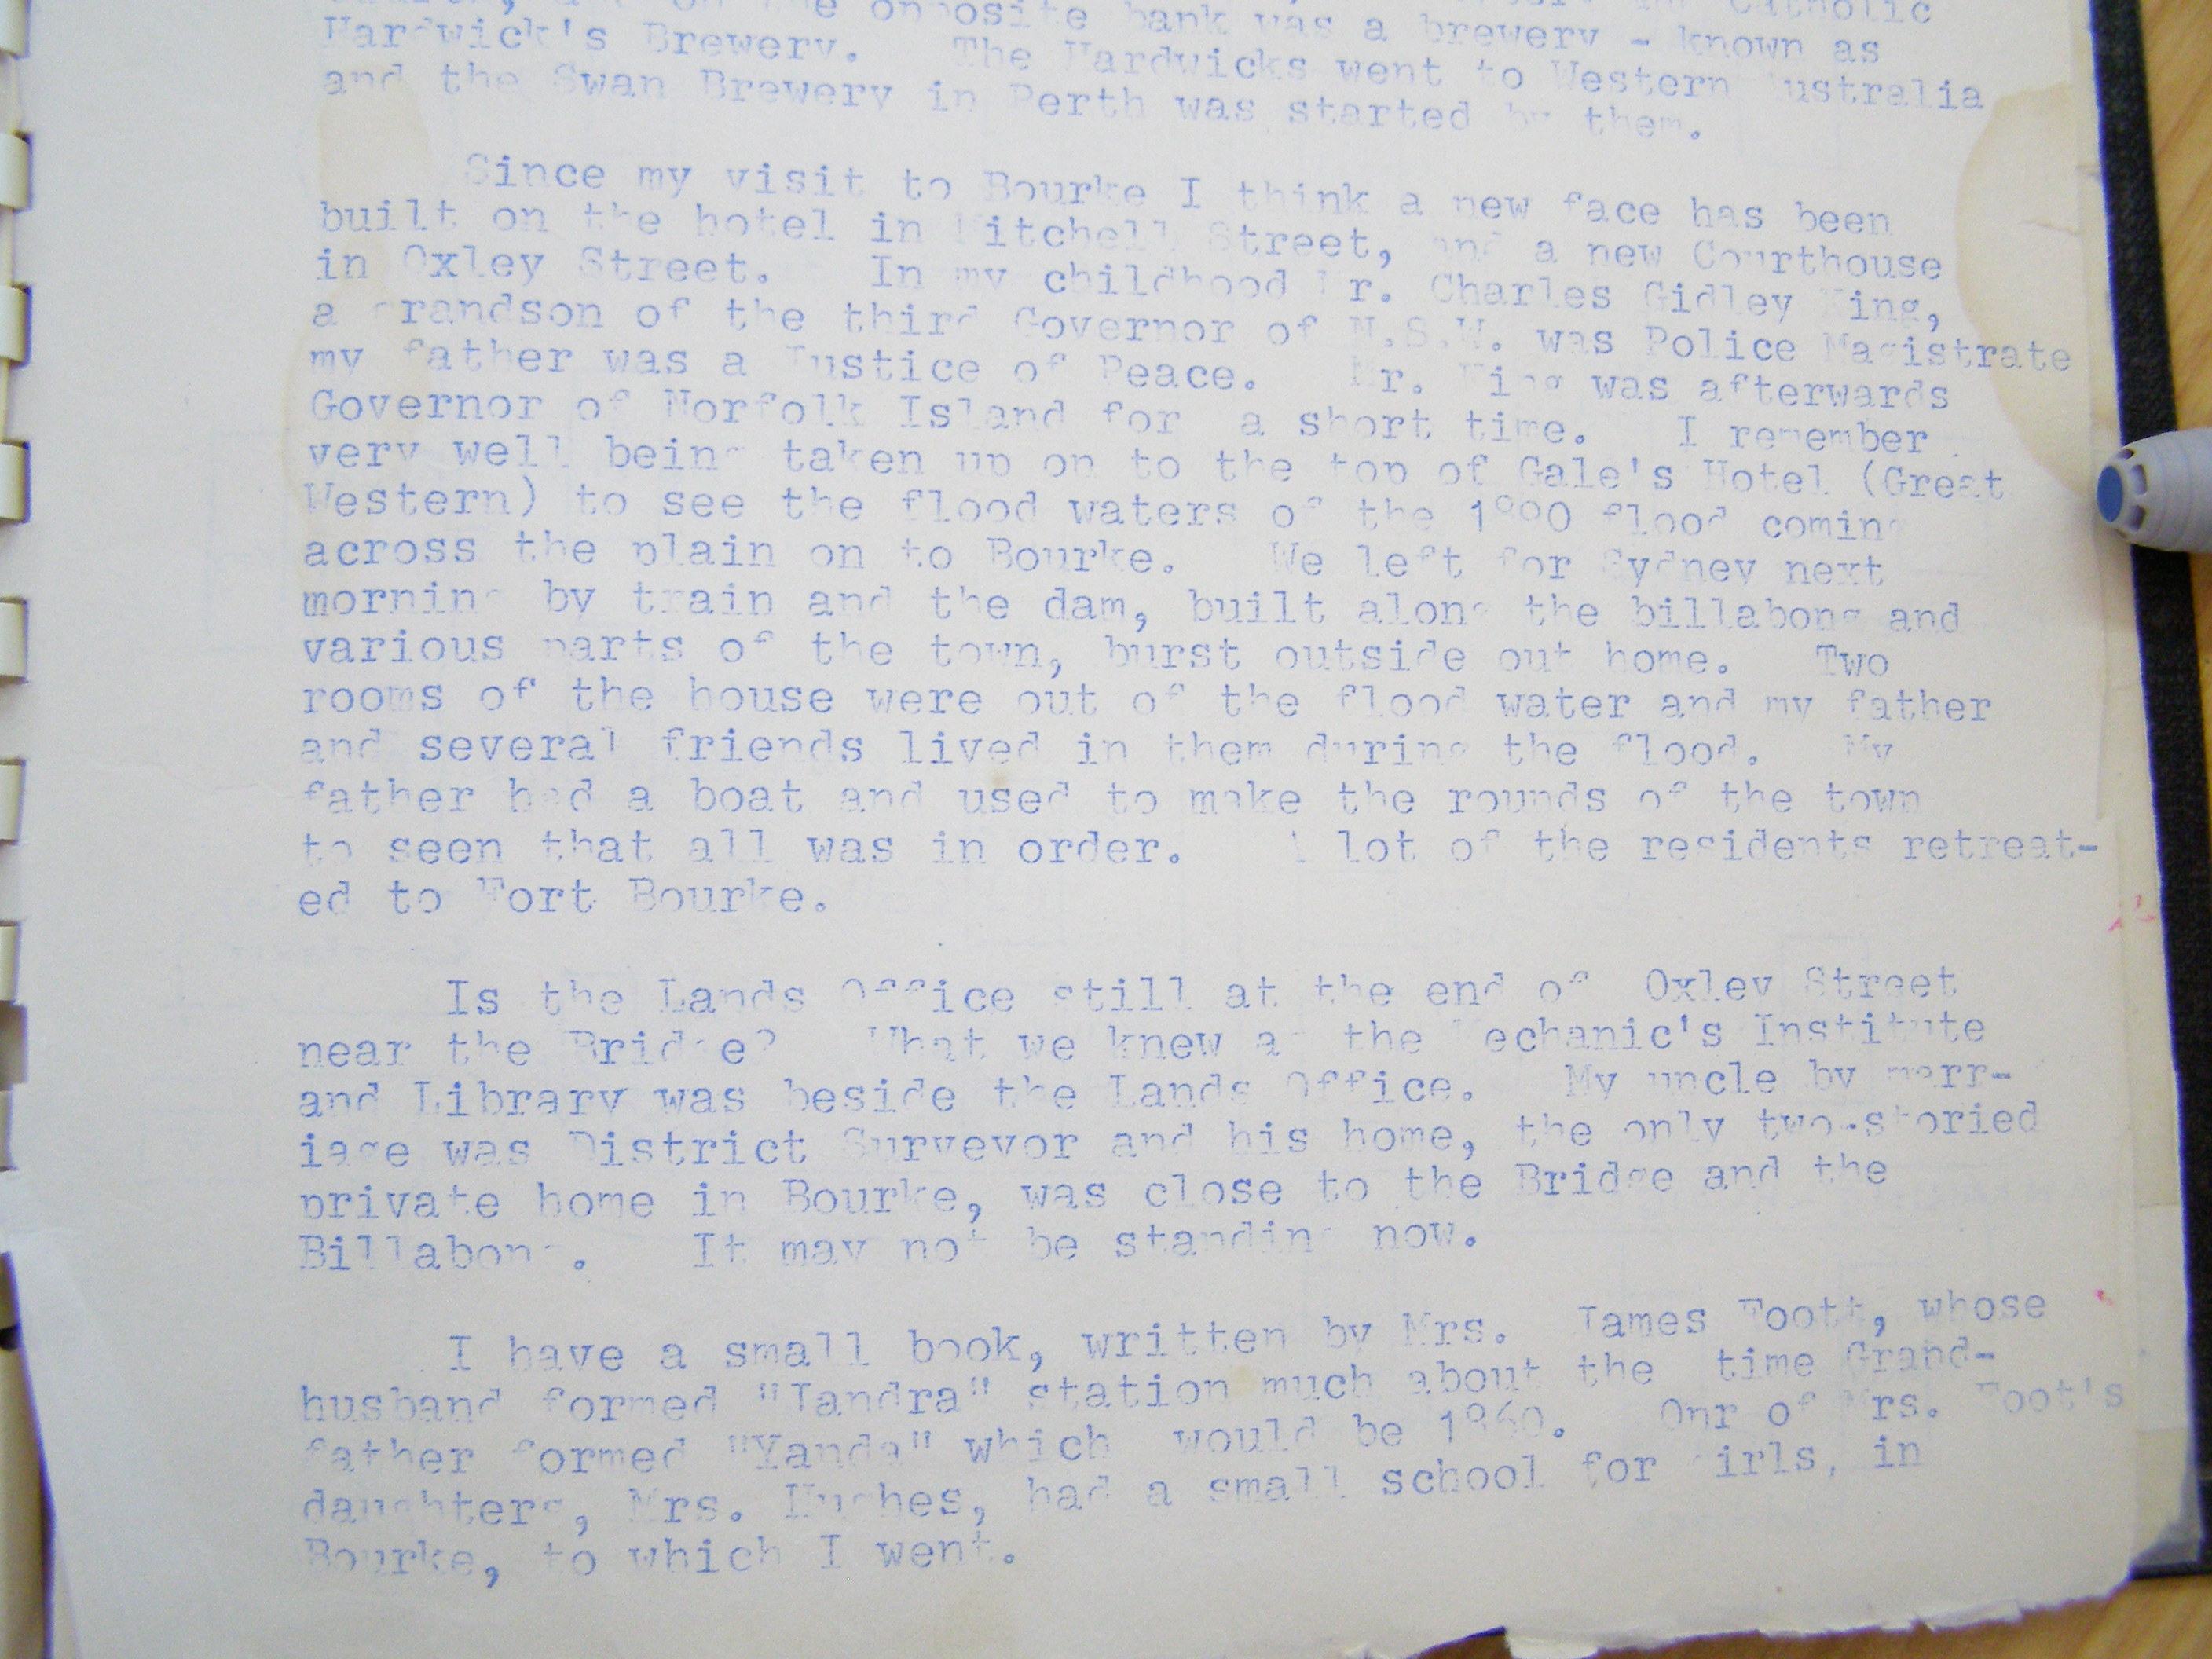 on the opposite bank was a brewery - known as
Hardwick's Brewery. The Hardwicks went to Western Australia
and the Swan Brewery in Perth was started by them.
Since my visit to Bourke I think a new face has been
built on the hotel in Mitchell Street, and a new Courthouse
in Oxley Street. In my childhood Mr. Charles Gidley King,
a grandson of the third Governor of N.S.W. was Police Magistrate
my father was a Justice of Peace. Mr. King was afterwards
Governor of Norfolk Island for a short time. I remember
very well being taken up on to the top of Gale's Hotel (Great
Western) to see the flood waters of the 1890 flood coming
across the plain on to Bourke. We left for Sydney next
morning by train and the dam, built along the billabong and
various parts of the town, burst outside out home. Two
rooms of the house were out of the flood water and my father
and several friends lived in them during the flood. My
father had a boat and used to make the rounds of the town
to seen that all was in order. A lot of the residents retreat-
ed to Fort Bourke.
Is the Lands Office still at the end of Oxley Street
near the Bridge? What we knew as the Mechanic's Institute
and Library was beside the Lands Office. My uncle by marr-
iage was District Surveyor and his home, the only two-storied
private home in Bourke, was close to the Bridge and the
Billabong. It may not be standing now.
I have a small book, written by Mrs. James Foott, whose
husband formed "Jandra" station much about the time Grand-
father formed "Yanda" which would be 1860. Onr of Mrs. Foot's
daughters, Mrs. Hughes, had a small school for girls, in
Bourke, to which I went.